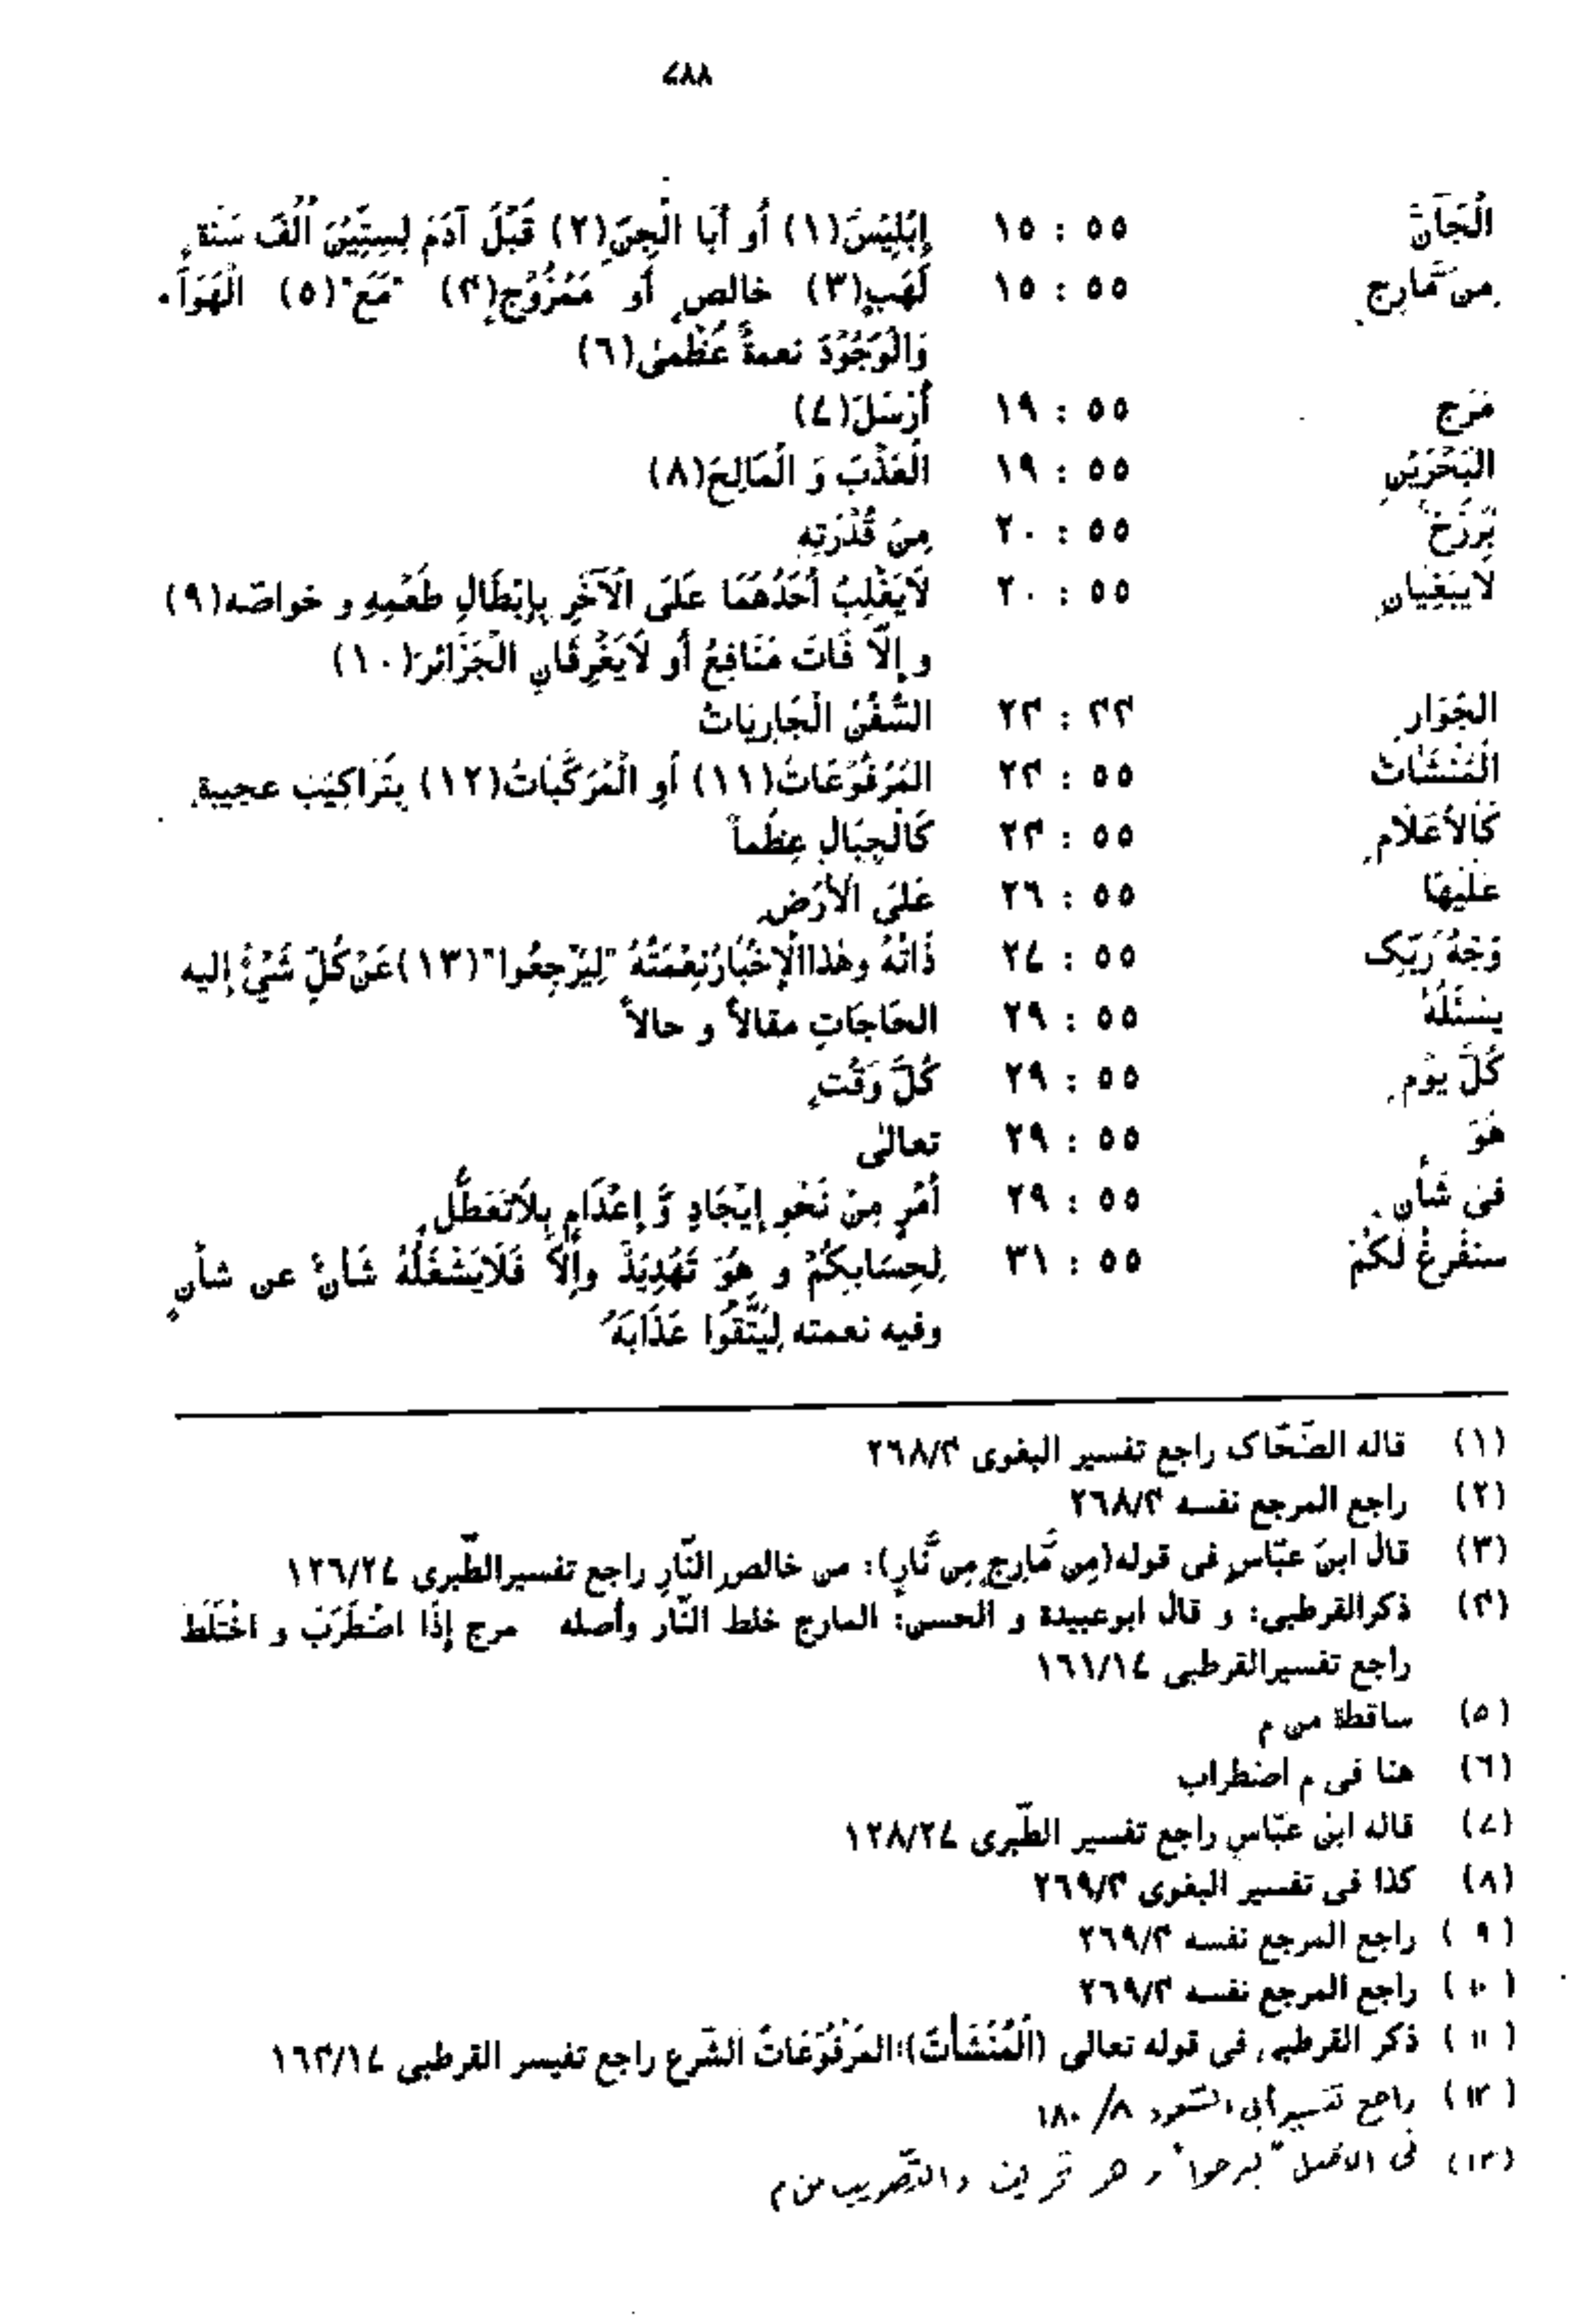 ۷۸۸
اَلْجَآنَّ ٥٥ : ١٥ إِبْلِيْسَ(١) أَو أَبَا الْجِنِّ(٢) قَبْلَ آدَمَ بِسِتِّيْنَ أَلْفَ سَنَةٍ
مِن مَّارِجٍ ٥٥ : ١٥ لَهَبٍ(٣) خالصٍ أو مَمْزُوْجٍ(۴) "مَعَ"(٥) الْهَوَآءِ
وَالْوُجُوْدُ نعمةٌ عُظْمىٰ(٦)
مَرَجَ ٥٥ : ١٩ أَرْسَلَ(۷)
الْبَحْرَيْنِ ٥٥ : ١٩ الْعَذْبَ وَ الْمَالِحَ(٨)
بَرْزَخٌ ٥٥ : ٢٠ مِنْ قُدْرَتِهِ
لَايَبْغِيَانِ ٥٥ : ٢٠ لَايَغْلِبُ أَحَدُهُمَا عَلَى الْآخَرِ بِإِبْطَالِ طَعْمِهِ و خواصّه(٩)
و إِلَّا فَاتَ مَنَافِعُ أو لَايَغْرِقَانِ الْجَزَائِرَ(١٠)
الْجَوَارِ ۴۲ : ۲۴ السُّفُنُ الْجَارِيَاتُ
الْمُنْشَآتُ ٥٥ : ۲۴ الْمَرْفُوْعَاتُ(١١) أَوِ الْمُرَكَّبَاتُ(١٢) بِتَرَاكِيْبَ عجيبةٍ
كَالأَعْلَامِ ٥٥ : ۲۴ كَالْجِبَالِ عِظَماً
عَلَيْهَا ٥٥ : ٢٦ عَلَى الْأَرْضِ
وَجْهُ رَبِّکَ ٥٥ : ٢۷ ذَاتُهُ وهٰذا الْإِخْبَارُ نِعْمَتُهُ "لِيَرْجِعُوا"(١٣) عَنْ كُلِّ شَيْءٍ إليه
يَسْئَلُهُ ٥٥ : ٢٩ الحَاجَاتِ مقالاً و حالاً
كُلَّ يَوْمٍ ٥٥ : ٢٩ كُلَّ وَقْتٍ
هُوَ ٥٥ : ٢٩ تعالىٰ
فِى شَأْنٍ ٥٥ : ٢٩ أَمْرٍ مِنْ نَحْوِ إِيْجَادٍ وَّ إِعْدَامٍ بِلَاتَعَطُّلٍ
سَنَفْرُغُ لَكُمْ ٥٥ : ٣١ لِحِسَابِكُمْ و هُوَ تَهْدِيْدٌ وإِلَّا فَلَايَشْغَلُهُ شَأْنٌ عن شأنٍ
وفيه نعمته لِيَتَّقُوا عَذَابَهُ
(١) قاله الضّحّاک راجع تفسير البغوى ٢٦٨/۴
(٢) راجع المرجع نفسه ٢٦٨/۴
(٣) قال ابن عبّاس فى قوله(مِن مَّارِجٍ مِن نَّارٍ): من خالص النّارِ راجع تفسيرالطّبرى ١٢٦/٢۷
(۴) ذكرالقرطبى: و قال ابوعبيدة و الحسن: المارج خلط النّار وأصله مرج إِذَا اضْطَرَبَ و اخْتَلَطَ
راجع تفسيرالقرطبى ١٦١/١۷
(٥) ساقطة من م
(٦) هنا فى م اضطراب
(۷) قاله ابن عبّاس راجع تفسير الطّبرى ١٢٨/٢۷
(٨) كذا فى تفسير البغوى ٢٦٩/۴
(٩) راجع المرجع نفسه ٢٦٩/۴
(١٠) راجع المرجع نفسه ٢٦٩/۴
(١١) ذكر القرطبى فى قوله تعالى (اَلْمُنْشَأٰتُ):المَرْفُوْعَاتُ الشّرع راجع تفيسر القرطبى ١٦۴/١۷
(١٢) راجع تفسير أبى السّعود ٨/١٨٠
(١٣) فى الاصل "ليرحوا" و هو تحريف والتّصويب من م